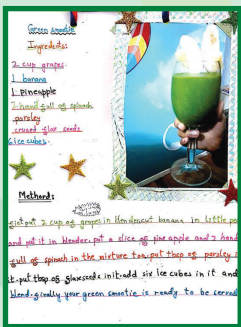 Green smootie
Ingredents:
2 cup grapes.
1 banana
1 pineapple
7 hand full of spinach
parsley
crused flax seeds
6 ice cubes.
Methord:
put 2 cup of grapes in blender cut banana in little
and put it in blender. put a slice of pine apple and 7 hand
full of spinach in the mixture too. put tbsp of parsley
it. put tbsp of flaxseeds init. add six Ice cubes in it and
blend. finally your green smootie is ready to be served